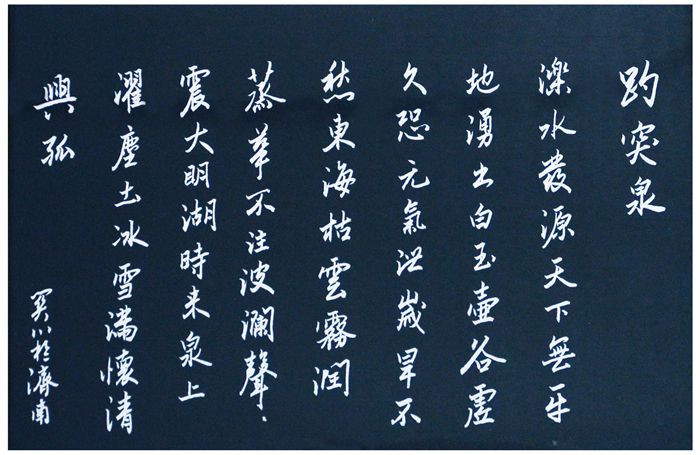 趵突泉
濼水發源天下無平
地湧出白玉壺谷虛
久恐元氣泄歲旱不
愁東海枯雲霧潤
蒸華不注波瀾聲
震大明湖時来泉上
濯塵土冰雪滿懷清
興孤
川於濟南